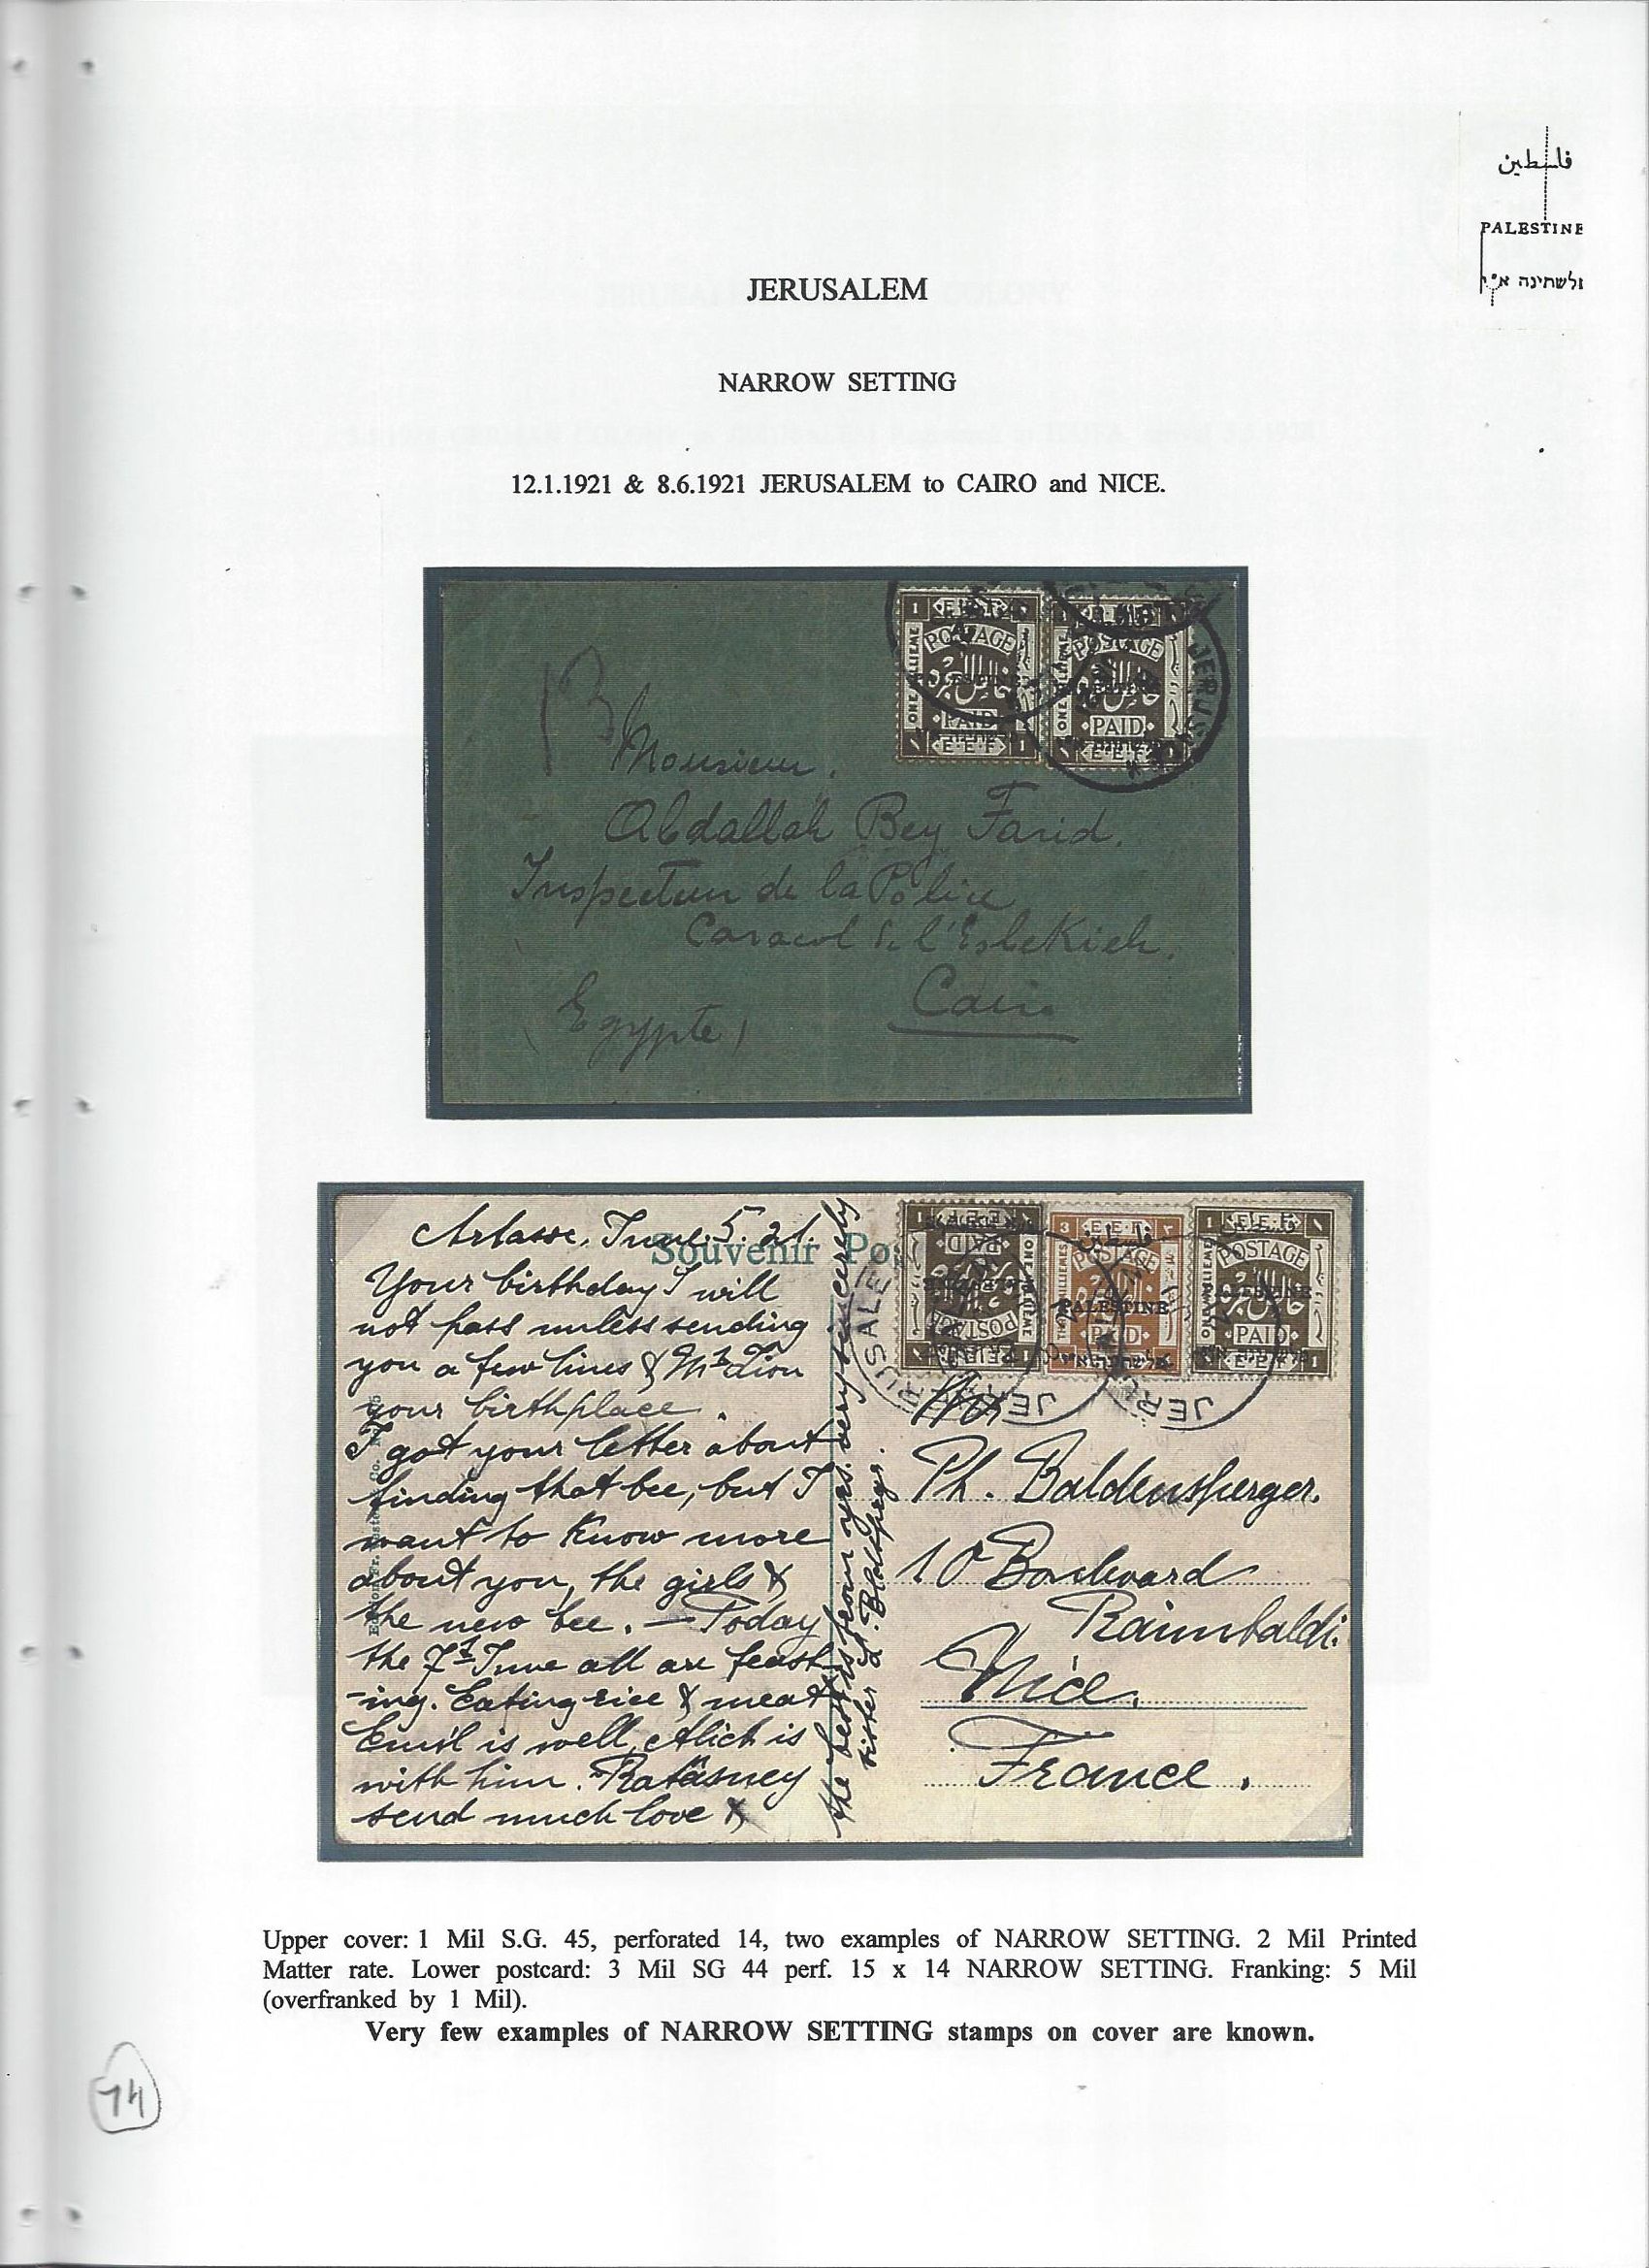 فلسطين
PALESTINE
JERUSALEM
NARROW SETTING
12.1.1921 & 8.6.1921 JERUSALEM to CAIRO and NICE.
1 E.E.F.
POSTAGE
ONE MILLIEME
PAID
E.E.F 1
POSTAGE
PAID
E.E.F
JERUS
13
Monsieur.
Abdallah Bey Farid.
Inspecteur de la Police
Caracol de l'Esbekieh.
Cairo
(Egypte)
Souvenir Po
Artasse, June 5. 21.
Your birthday I will
not pass unless sending
you a few lines & Mt Zion
your birthplace.
I got your letter about
finding that bee, but I
want to know more
about you, the girls &
the new bee. — Today
the 7t June all are feast
-ing. Eating rice & meat
Emil is well, Alich is
with him.
send much love &
the best is from yrs. very sincerely
sister
3 E.E.F
POSTAGE
PALESTINE
PAID
1 E.E.F
POSTAGE
PALESTINE
PAID
E.E.F 1
RUSALE
Mr
Ph. Baldensperger.
10 Boulevard
Raimbaldi.
Nice.
France.
Upper cover: 1 Mil S.G. 45, perforated 14, two examples of NARROW SETTING. 2 Mil Printed
Matter rate. Lower postcard: 3 Mil SG 44 perf. 15 x 14 NARROW SETTING. Franking: 5 Mil
(overfranked by 1 Mil).
Very few examples of NARROW SETTING stamps on cover are known.
74